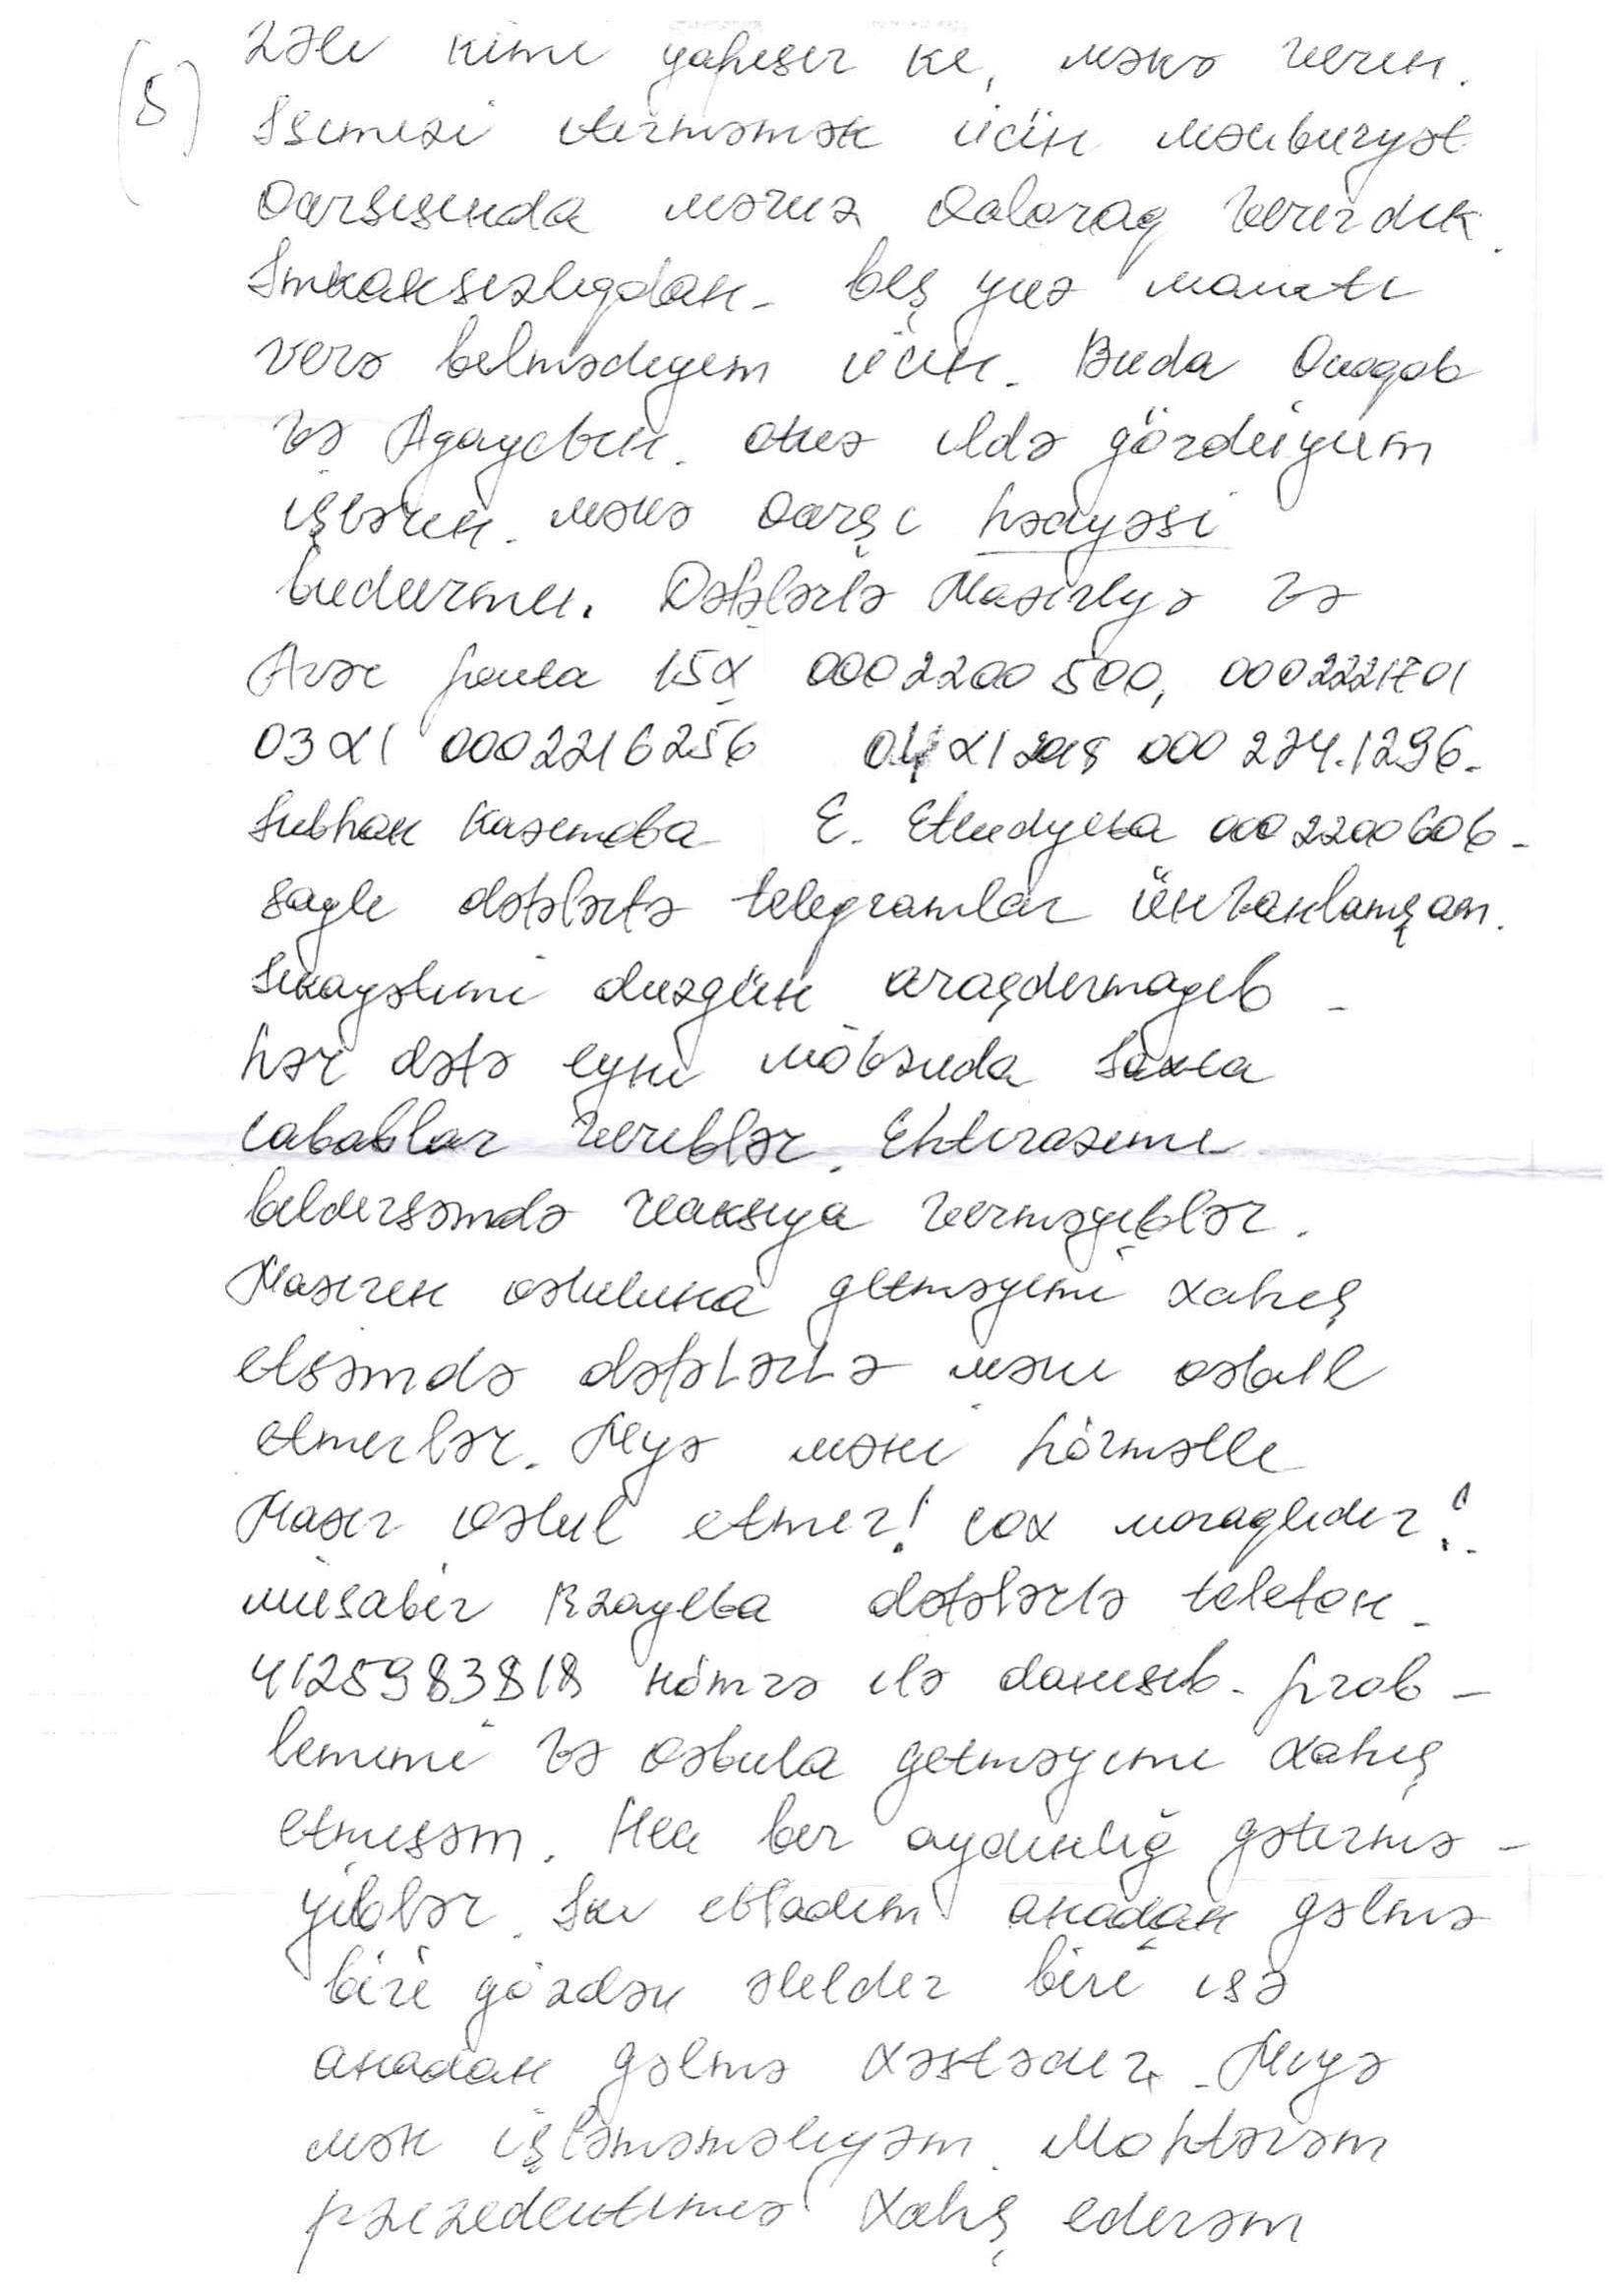 (5)
kimi ke, mənə verin.
İsimizi itirməmək üçün məcburyət
Qarsısında məruz Qalaraq verirdik.
İmkansızlıqdan. beş yüz manatı
verə bilmədiyim üçün. Buda Qısaqab
və Agayevin. otuz ildə gördüyüm
işlərin. mənə Qarşı hədyəsi
budurmu. Dəfələrlə Nazirlyə və
poçta 15X 0002200500, 0002221701
03XI 0002216256 04XI 2015 000 274.1296.
Subhan Kazımova E. 0002200606.
saylı dəfələrlə telegramlar ünvanlamışam.
Sikayətimi duzgün araşdırmayıb
hər dəfə eyni mövzuda saxta
cavablar veriblər. Ehtirazımı
bildirsəmdə reaksıya verməyiblər.
Nazirin Qəbuluna getməyimi xahiş
etsəmdə dəfələrlə məni Qəbul
etmirlər. Niyə məni hörmətli
Nazir Qəbul etmir! çox maraqlıdır!
müsavir Rzayeva dəfələrlə telefon
4125983818 nömrə ilə danısıb. prob-
lemimi və Qəbula getməyimi xahiş
etmisəm. Heç bir aydınlığ gətirmə-
yiblər. İki evladım anadan gəlmə
biri gözdən əlildir biri isə
anadan gəlmə xəstədir. Niyə
mən işləməməliyəm. Möhtərəm
prezidentimə xahiş edirəm